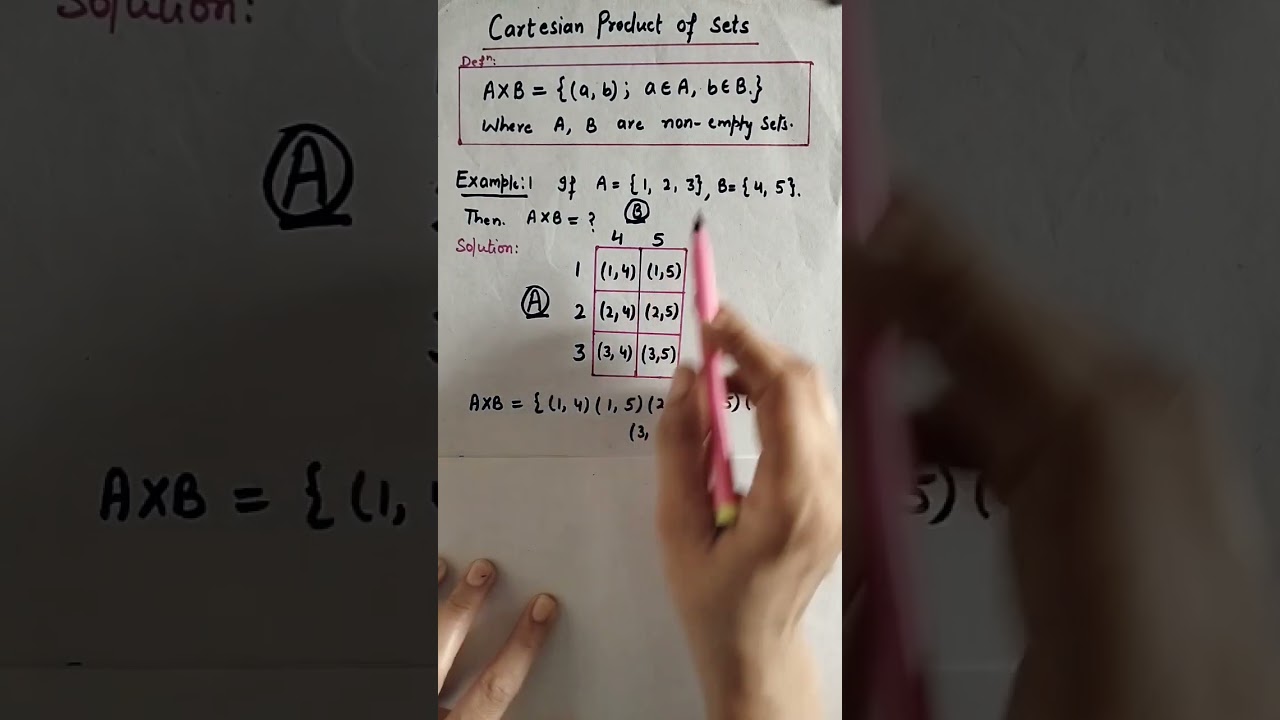 Cartesian Product of Sets
Defⁿ:
A×B = {(a, b) ; a ∈ A, b ∈ B.}
Where A, B are non-empty sets.
Example:1 If A = {1, 2, 3}, B = {4, 5}.
Then. A×B = ?
B
Solution:
4 5
1 (1, 4) (1, 5)
A
2 (2, 4) (2, 5)
3 (3, 4) (3, 5)
A×B = { (1, 4) (1, 5) (2 5) (
(3,
Solution:
A
A×B = { (1,
5) (